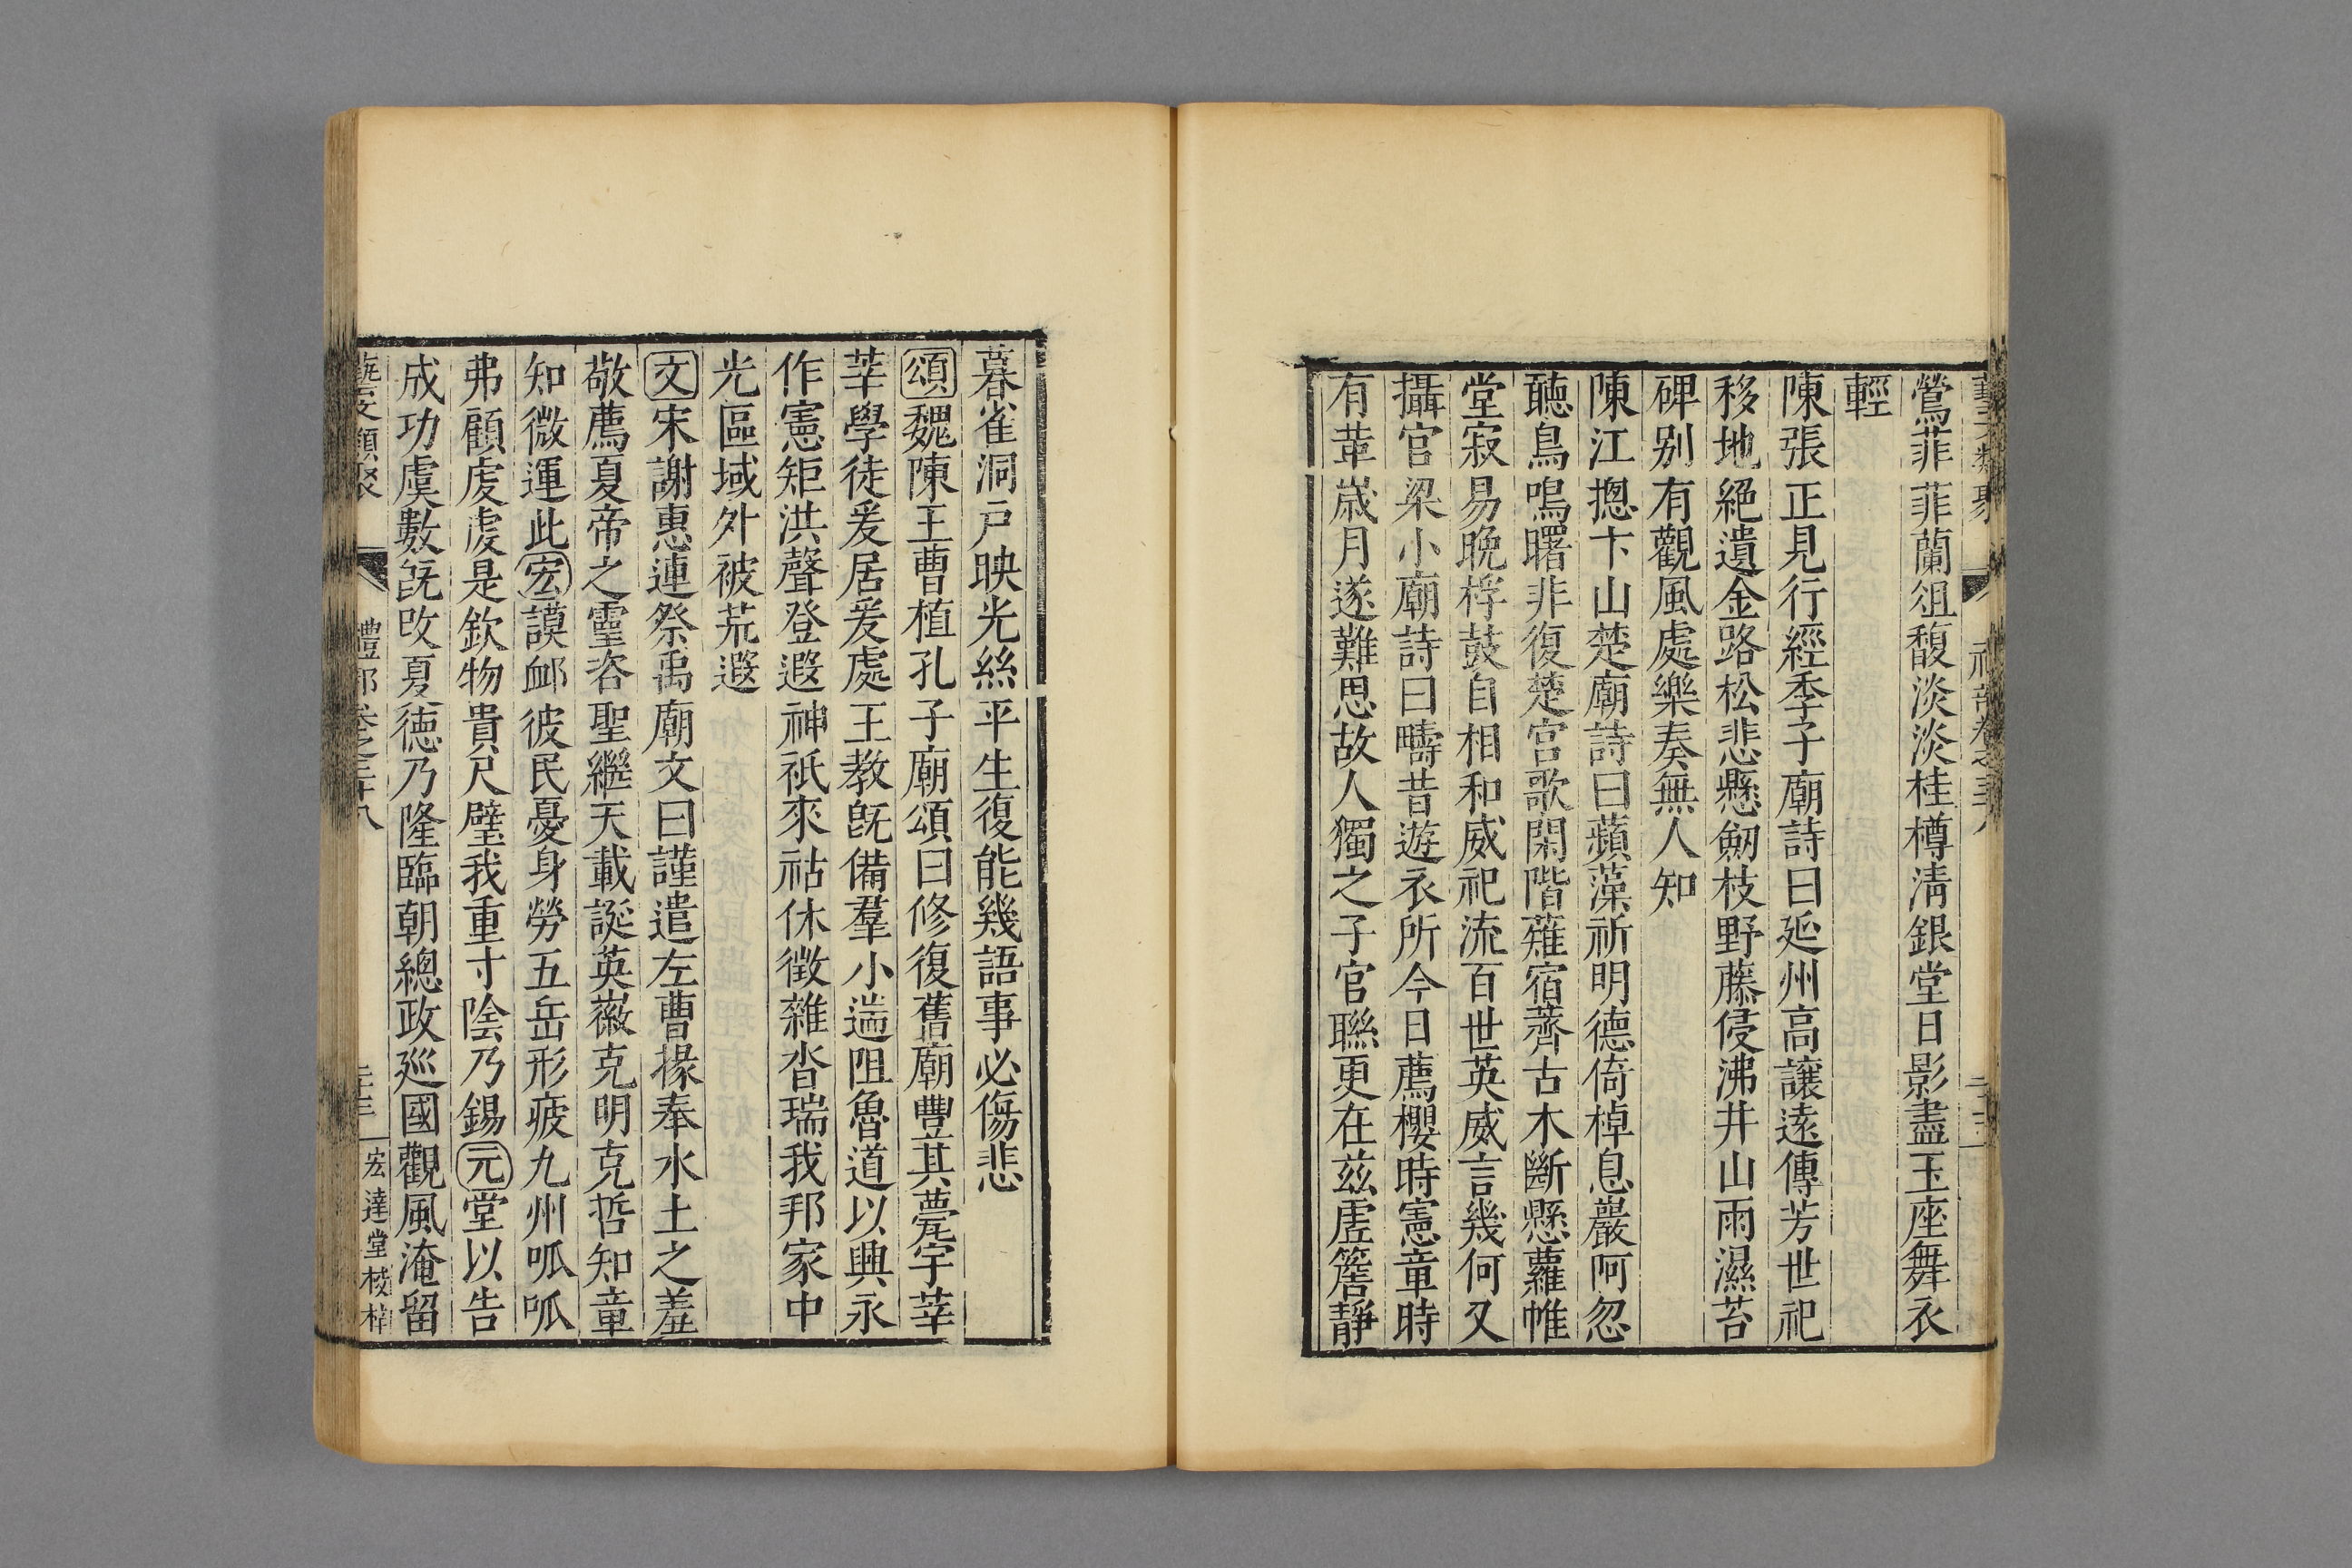 鶯菲菲蘭俎馥淡淡桂樽淸銀堂日影盡玉座舞衣
輕
陳張正見行經季子廟詩曰延州高讓遠傳芳世祀
移地絕遺金路松悲懸劒枝野藤侵沸井山雨濕苔
碑别有觀風處樂奏無人知
陳江揔卞山楚廟詩曰蘋藻祈明德倚棹息巖阿忽
聽鳥鳴曙非復楚宮歌閑階薙宿薺古木斷懸蘿帷
堂寂易晚桴鼓自相和威祀流百世英威言幾何又
攝官梁小廟詩曰疇昔遊衣所今日薦櫻時憲章時
有革歳月遂難思故人獨之子官聯更在兹虚簷靜
暮雀洞戸映光絲平生復能幾語事必傷悲
頌魏陳王曹植孔子廟頌曰修復舊廟豐其甍宇莘
莘學徒爰居爰處王教旣備羣小遄阻魯道以興永
作憲矩洪聲登遐神祇來祜休徴雜沓瑞我邦家中
光區域外被荒遐
文宋謝惠連祭禹廟文曰謹遣左曹掾奉水土之羞
敬薦夏帝之靈咨聖繼天載誕英徽克明克哲知章
知微運此宏謨䘏彼民憂身勞五岳形疲九州呱呱
弗顧虔虔是欽物貴尺璧我重寸陰乃錫元堂以告
成功虞數旣改夏德乃隆臨朝總政廵國觀風淹留
藝文類聚 禮部卷之三十八 二十三 宏達堂栞梓